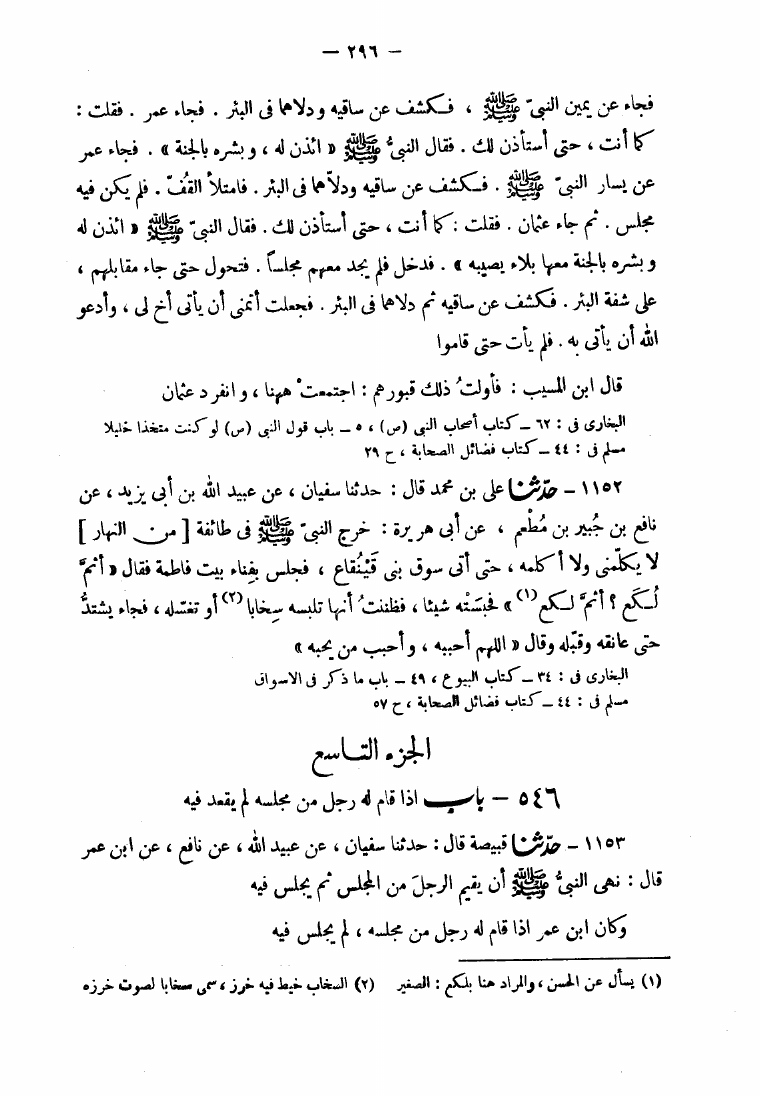 — ٢٩٦ —
فجاء عن يمين النبىّ ﷺ ، فكشف عن ساقيه ودلاهما فى البئر . فجاء عمر . فقلت :
كما أنت ، حتى أستأذن لك . فقال النبىُّ ﷺ « ائذن له ، وبشره بالجنة » . فجاء عمر
عن يسار النبىّ ﷺ . فكشف عن ساقيه ودلاّهما فى البئر . فامتلأ القُفّ . فلم يكن فيه
مجلس . ثم جاء عثمان . فقلت : كما أنت ، حتى أستأذن لك . فقال النبىّ ﷺ « ائذن له
وبشره بالجنة معها بلاء يصيبه » . فدخل فلم يجد معهم مجلساً . فتحول حتى جاء مقابلهم ،
على شفة البئر . فكشف عن ساقيه ثم دلاهما فى البئر . فجعلت أتمنى أن يأتى أخ لى ، وأدعو
الله أن يأتى به . فلم يأت حتى قاموا
قال ابن المسيب : فأولتُ ذلك قبورهم : اجتمعتْ ههنا ، وانفرد عثمان
البخارى فى : ٦٢ – كتاب أصحاب النبى (ص) ، ٥ – باب قول النبى (ص) لو كنت متخذا خليلا
مسلم فى : ٤٤ – كتاب فضائل الصحابة ، ح ٢٩
١١٥٢ – حدّثنا على بن محمد قال : حدثنا سفيان ، عن عبيد الله بن أبى يزيد ، عن
نافع بن جُبير بن مُطْعم ، عن أبى هريرة : خرج النبىّ ﷺ فى طائفة [ من النهار ]
لا يكلّمنى ولا أكلمه ، حتى أتى سوق بنى قَيْنُقاع ، فجلس بفِناء بيت فاطمة فقال « أثمَّ
لُكَع ؟ أثمَّ لكع (١) » فحبسَتْه شيئا ، فظننتُ أنها تلبسه سِخابا (٢) أو تغسّله ، فجاء يشتدُّ
حتى عانقه وقبّله وقال « اللهم أحببه ، وأحبب من يحبه »
البخارى فى : ٣٤ – كتاب البيوع ، ٤٩ – باب ما ذكر فى الاسواق
مسلم فى : ٤٤ – كتاب فضائل الصحابة ، ح ٥٧
الجزء التاسع
٥٤٦ – باب اذا قام له رجل من مجلسه لم يقعد فيه
١١٥٣ – حدّثنا قبيصة قال : حدثنا سفيان ، عن عبيد الله ، عن نافع ، عن ابن عمر
قال : نهى النبىُّ ﷺ أن يقيم الرجلَ من المجلس ثم يجلس فيه
وكان ابن عمر اذا قام له رجل من مجلسه ، لم يجلس فيه
(١) يسأل عن الحسن ، والمراد هنا بلكع : الصغير (٢) السخاب خيط فيه خرز ، سمى سخابا لصوت خرزه